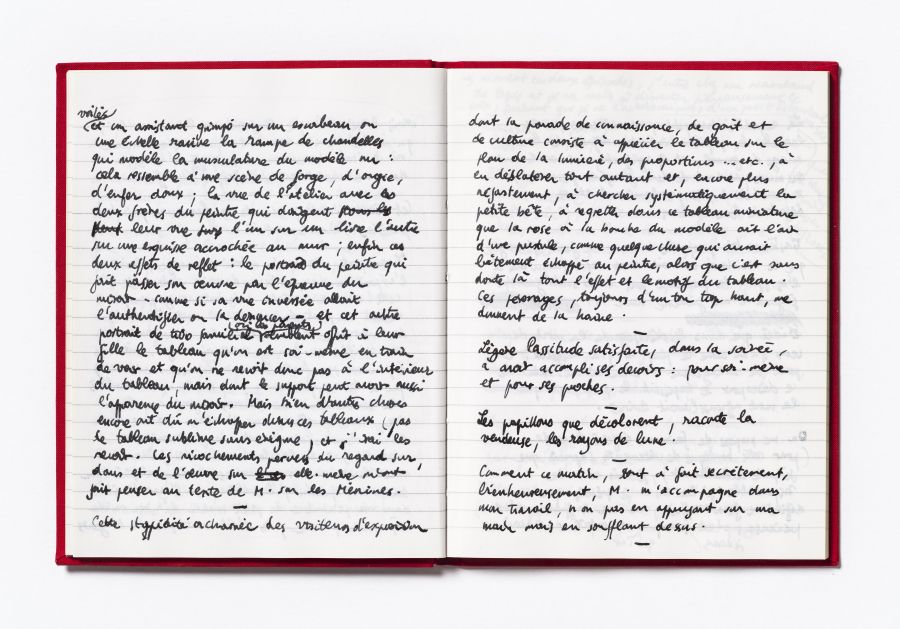 voilés
et un assistant grimpé sur un escabeau ou
une échelle ranime la rampe de chandelles
qui modèle la musculature du modèle nu :
cela ressemble à une scène de forge, d'orgie,
d'enfer doux ; la vue de l'atelier avec les
deux frères du peintre qui dirigent
leur vue l'un sur un livre l'autre
sur une esquisse accrochée au mur ; enfin ces
deux effets de reflet : le portrait du peintre qui
fait passer son œuvre par l'épreuve du
miroir - comme si sa vue inversée allait
l'authentifier ou la dénoncer - et cet autre
portrait de famille où les parents offrir à leur
fille le tableau qu'on est soi-même en train
de voir et qu'on ne revoit donc pas à l'intérieur
du tableau, mais dont le support peut avoir aussi
l'apparence du miroir. Mais bien d'autres choses
encore ont dû m'échapper dans ces tableaux (pas
le tableau sublime sans exigne, et j'irai les
revoir. Ces ricochements pervers du regard sur,
dans et de l'œuvre sur elle-même m'ont
fait penser au texte de M. sur les Ménines.
Cette stupidité acharnée des visiteurs d'exposition
dont la parade de connaissance, de goût et
de culture consiste à apprécier le tableau sur le
plan de la lumière, des proportions ... etc., à
en déblatérer tout autant et, encore plus
néfastement, à chercher systématiquement la
petite bête, à regretter dans ce tableau miniature
que la rose à la bouche du modèle ait l'air
d'une pustule, comme quelque chose qui aurait
bêtement échappé au peintre, alors que c'est sans
doute là tout l'effet et le motif du tableau.
Ces personnages, toujours d'un ton trop haut, me
donnent de la haine.
Légère lassitude satisfaite, dans la soirée,
à avoir accompli ses devoirs : pour soi-même
et pour ses proches.
Les papillons que décolorent, raconte la
vendeuse, les rayons de lune.
Comment ce matin, tout à fait secrètement,
bienheureusement, M. m'accompagne dans
mon travail, non pas en appuyant sur ma
main mais en soufflant dessus.